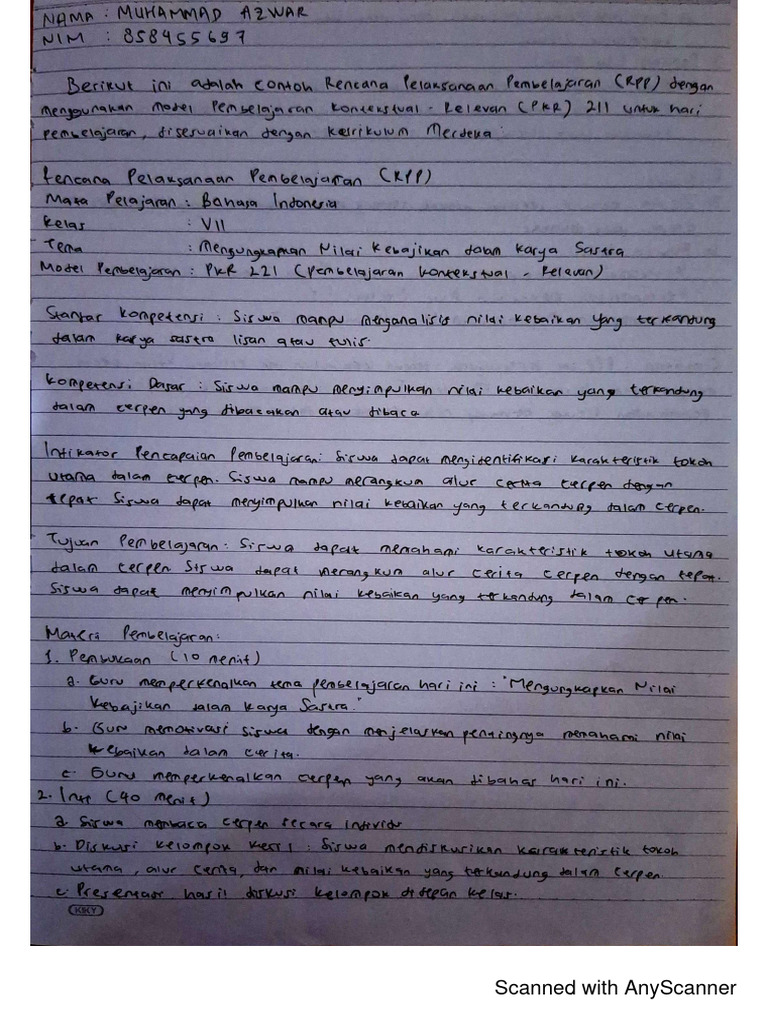 NAMA : MUHAMMAD AZWAR
NIM : 858455697
Berikut ini adalah contoh Rencana Pelaksanaan Pembelajaran (RPP) dengan
menggunakan model Pembelajaran Kontekstual - Relevan (PKR) 211 untuk hari
pembelajaran, disesuaikan dengan kurikulum Merdeka:
Rencana Pelaksanaan Pembelajaran (RPP)
Mata Pelajaran : Bahasa Indonesia
Kelas : VII
Tema : Mengungkapkan Nilai Kebajikan dalam Karya Sastra
Model Pembelajaran : PKR 221 (Pembelajaran Kontekstual - Relevan)
Standar Kompetensi : Siswa mampu menganalisis nilai kebaikan yang terkandung
dalam karya sastra lisan atau tulis.
Kompetensi Dasar : Siswa mampu menyimpulkan nilai kebaikan yang terkandung
dalam cerpen yang dibacakan atau dibaca
Indikator Pencapaian Pembelajaran: Siswa dapat mengidentifikasi karakteristik tokoh
utama dalam cerpen. Siswa mampu merangkum alur cerita cerpen dengan
tepat Siswa dapat menyimpulkan nilai kebaikan yang terkandung dalam cerpen.
Tujuan Pembelajaran : Siswa dapat memahami karakteristik tokoh utama
dalam cerpen Siswa dapat merangkum alur cerita cerpen dengan tepat.
Siswa dapat menyimpulkan nilai kebaikan yang terkandung dalam cerpen.
Materi Pembelajaran:
1. Pembukaan (10 menit)
a. Guru memperkenalkan tema pembelajaran hari ini : "Mengungkapkan Nilai
Kebajikan dalam Karya Sastra."
b. Guru memotivasi siswa dengan menjelaskan pentingnya memahami nilai
kebaikan dalam cerita.
c. Guru memperkenalkan cerpen yang akan dibahas hari ini.
2. Inti (40 menit)
a. Siswa membaca cerpen secara individu
b. Diskusi kelompok kecil : Siswa mendiskusikan karakteristik tokoh
utama, alur cerita, dan nilai kebaikan yang terkandung dalam cerpen.
c. Presentasi hasil diskusi kelompok di depan kelas.
KKY
Scanned with AnyScanner